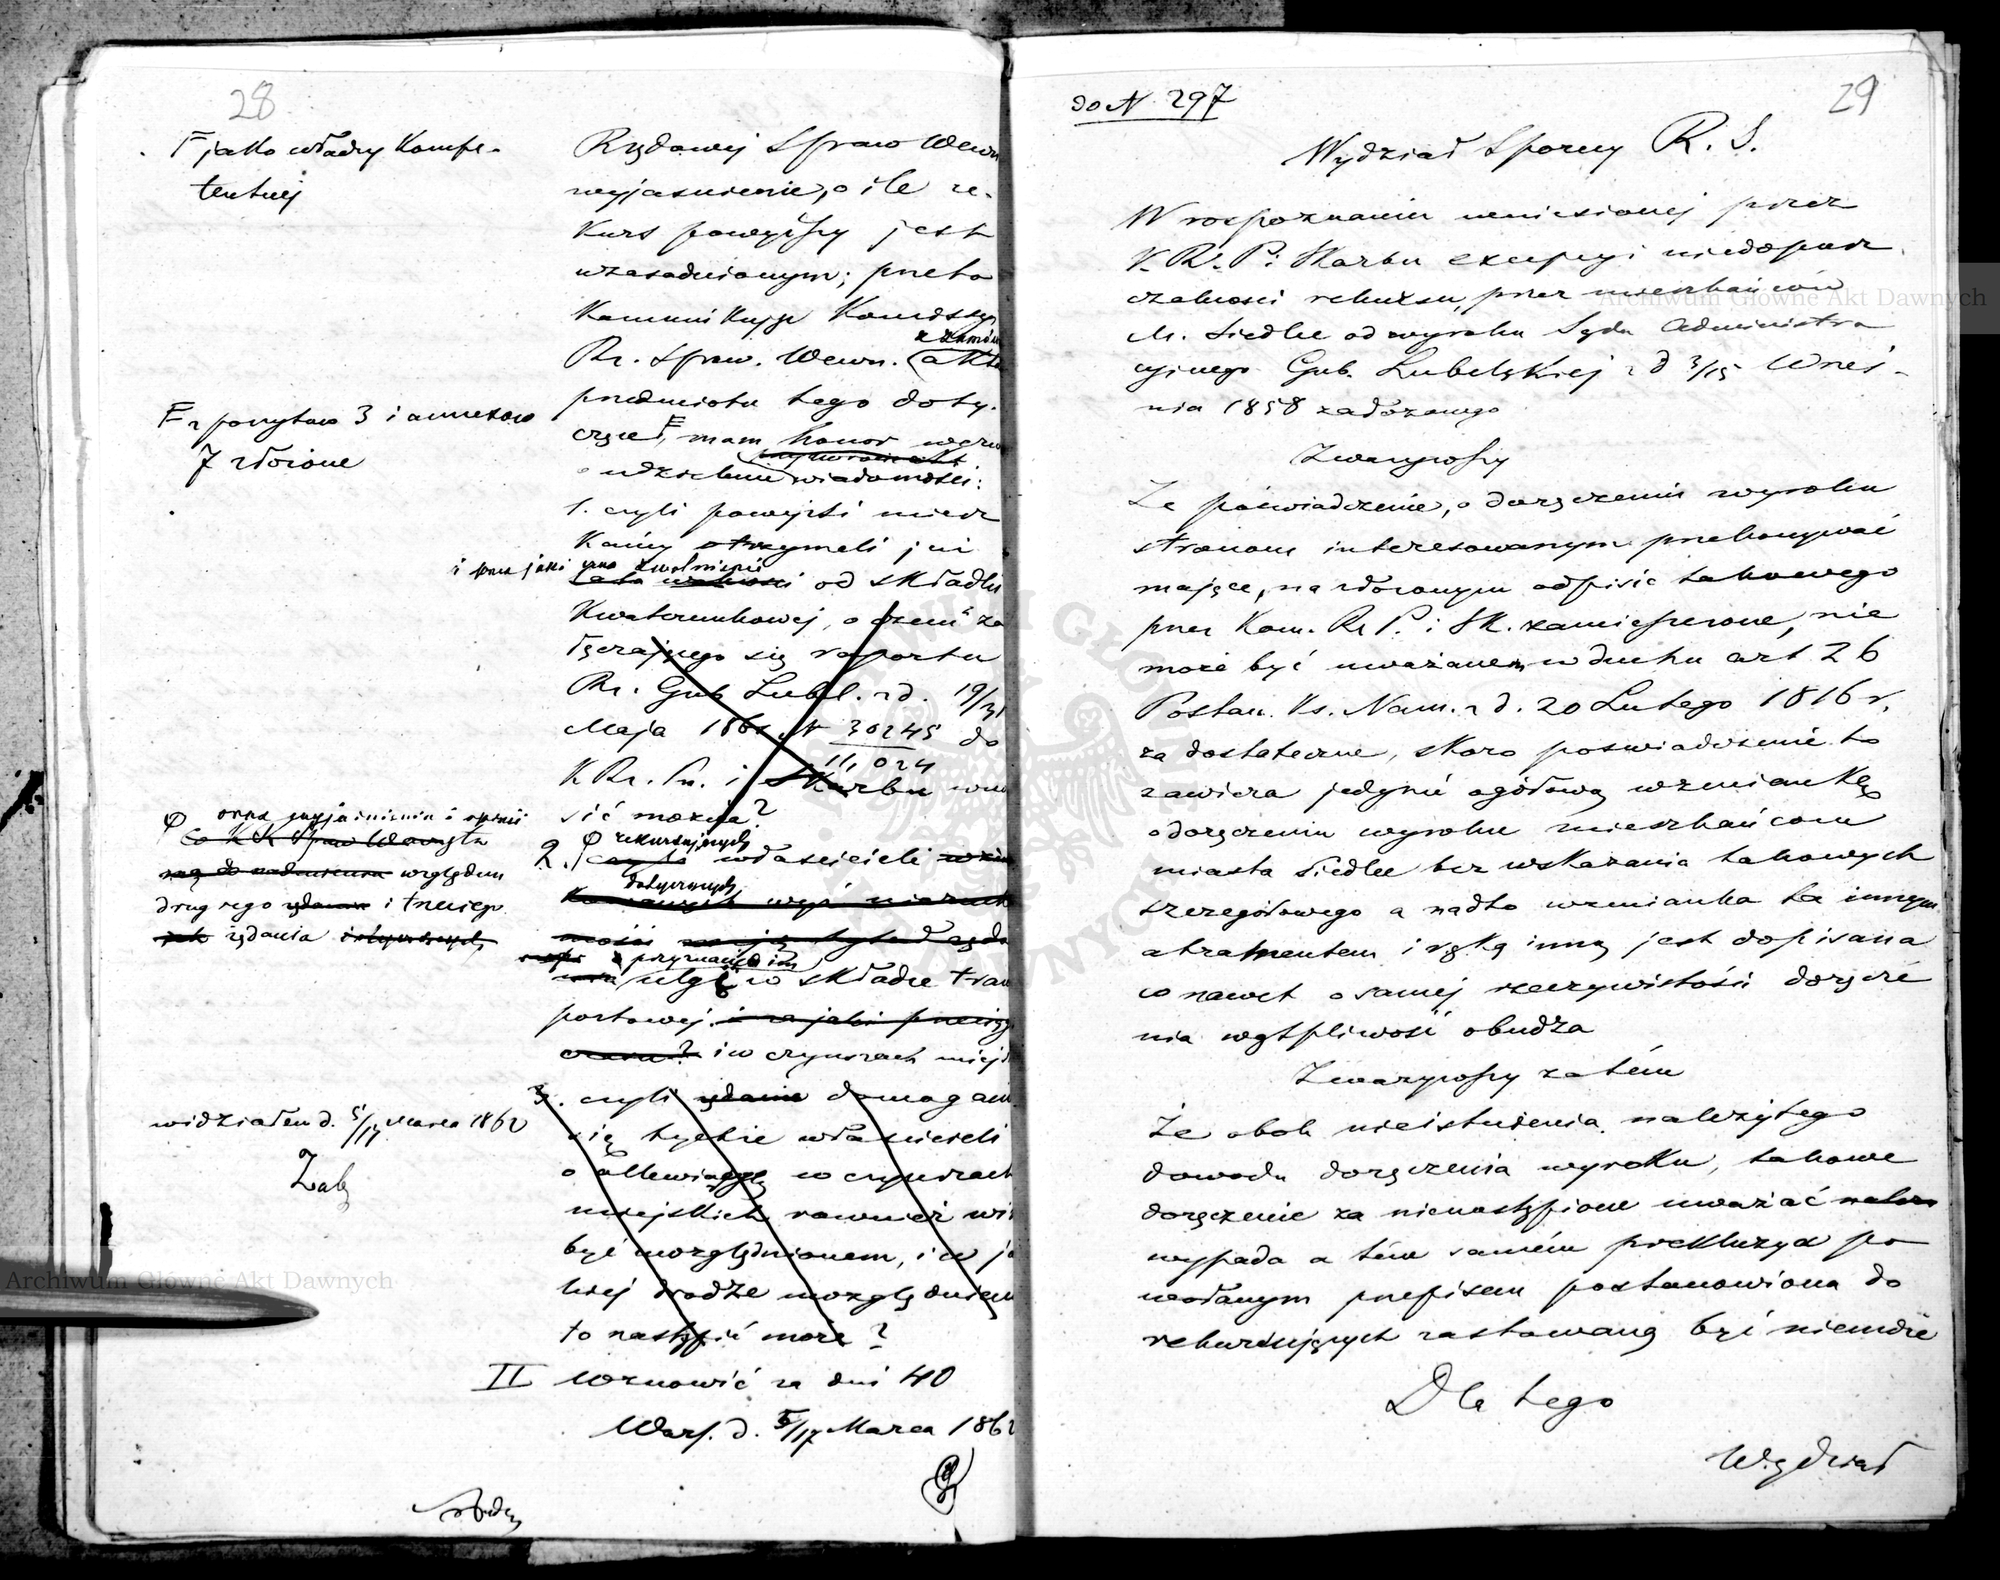 28
F jako władzy Kompe-
tentnej
Rządowej Spraw Wewn
wyjaśnienie, o ile re-
kurs powyższy jest
uzasadnionym; przeto
Kommunikując Kommissyi
Rz. Spraw. Wewn. akta
przedmiotu tego doty-
czące F, mam honor
o udzielenie wiadomości:
F z poszytów 3 i annexów
7 złożone
1. czyli powyżsi miesz
kańcy otrzymali już
i przez jaki czas uwolnienie
od składki
Kwaterunkowej, o czem z za
łączającego się raportu
Rz. Gub. Lubel. z d. 19/31
Maja 1861 N 30245 do
11,024
K. Rz. Prz. i Skarbu wno
sić można?
φ oraz wyjaśnienia i opinii
co K R Spraw Wewnętrz
względem
drugiego i trzeciego
żądania
2. φ rekurujących
właścicieli
dotyczących
przyznania im
ulgi w składce tran
sportowej
i w czynszach miejs
widziałem d. 5/17 Marca 1862
Zał
3. czyli żądanie domagani
się tychże właścicieli
o allewiacyą w czynszach
miejskich również wi
być uwzględnionem, i w ja
kiej drodze uwzględnienie
to nastąpić może?
II Wznowić za dni 40
Wars. d. 5/17 Marca 1862
do N 297
29
Wydział Sporny R. S.
W rozpoznaniu wniesionej przez
K. R. P. i Skarbu excepcyi niedopusz-
czalności rekursu, przez mieszkańców
M. Siedlec od wyroku Sądu Administra
cyjnego Gub. Lubelskiej z d 3/15 Wrześ-
nia 1858 założonego
Zważywszy
Że poświadczenie, o doręczeniu wyroku
stronom interesowanym przekonywać
mające, na złożonym odpisie takowego
przez Kom. Rz. P. i Sk. zamieszczone, nie
może być uważanem w duchu art 26
Postan. Ks. Nam. z d. 20 Lutego 1816 r.
za dostateczne, skoro poświadczenie to
zawiera jedynie ogółową wzmiankę
o doręczeniu wyroku mieszkańcom
miasta Siedlec bez wskazania takowych
szczegółowego a nadto wzmianka ta innym
atramentem i ręką inną jest dopisana
co nawet o samej rzeczywistości doręcze
nia wątpliwość obudza
Zważywszy zatém
Że obok nieistnienia należytego
dowodu doręczenia wyroku, takowe
doręczenie za nienastąpione uważać
wypada a tém samém prekluzya po
wołanym przepisem postanowiona do
rekurujących zastosowaną być niemoże
Dla tego
Wydział